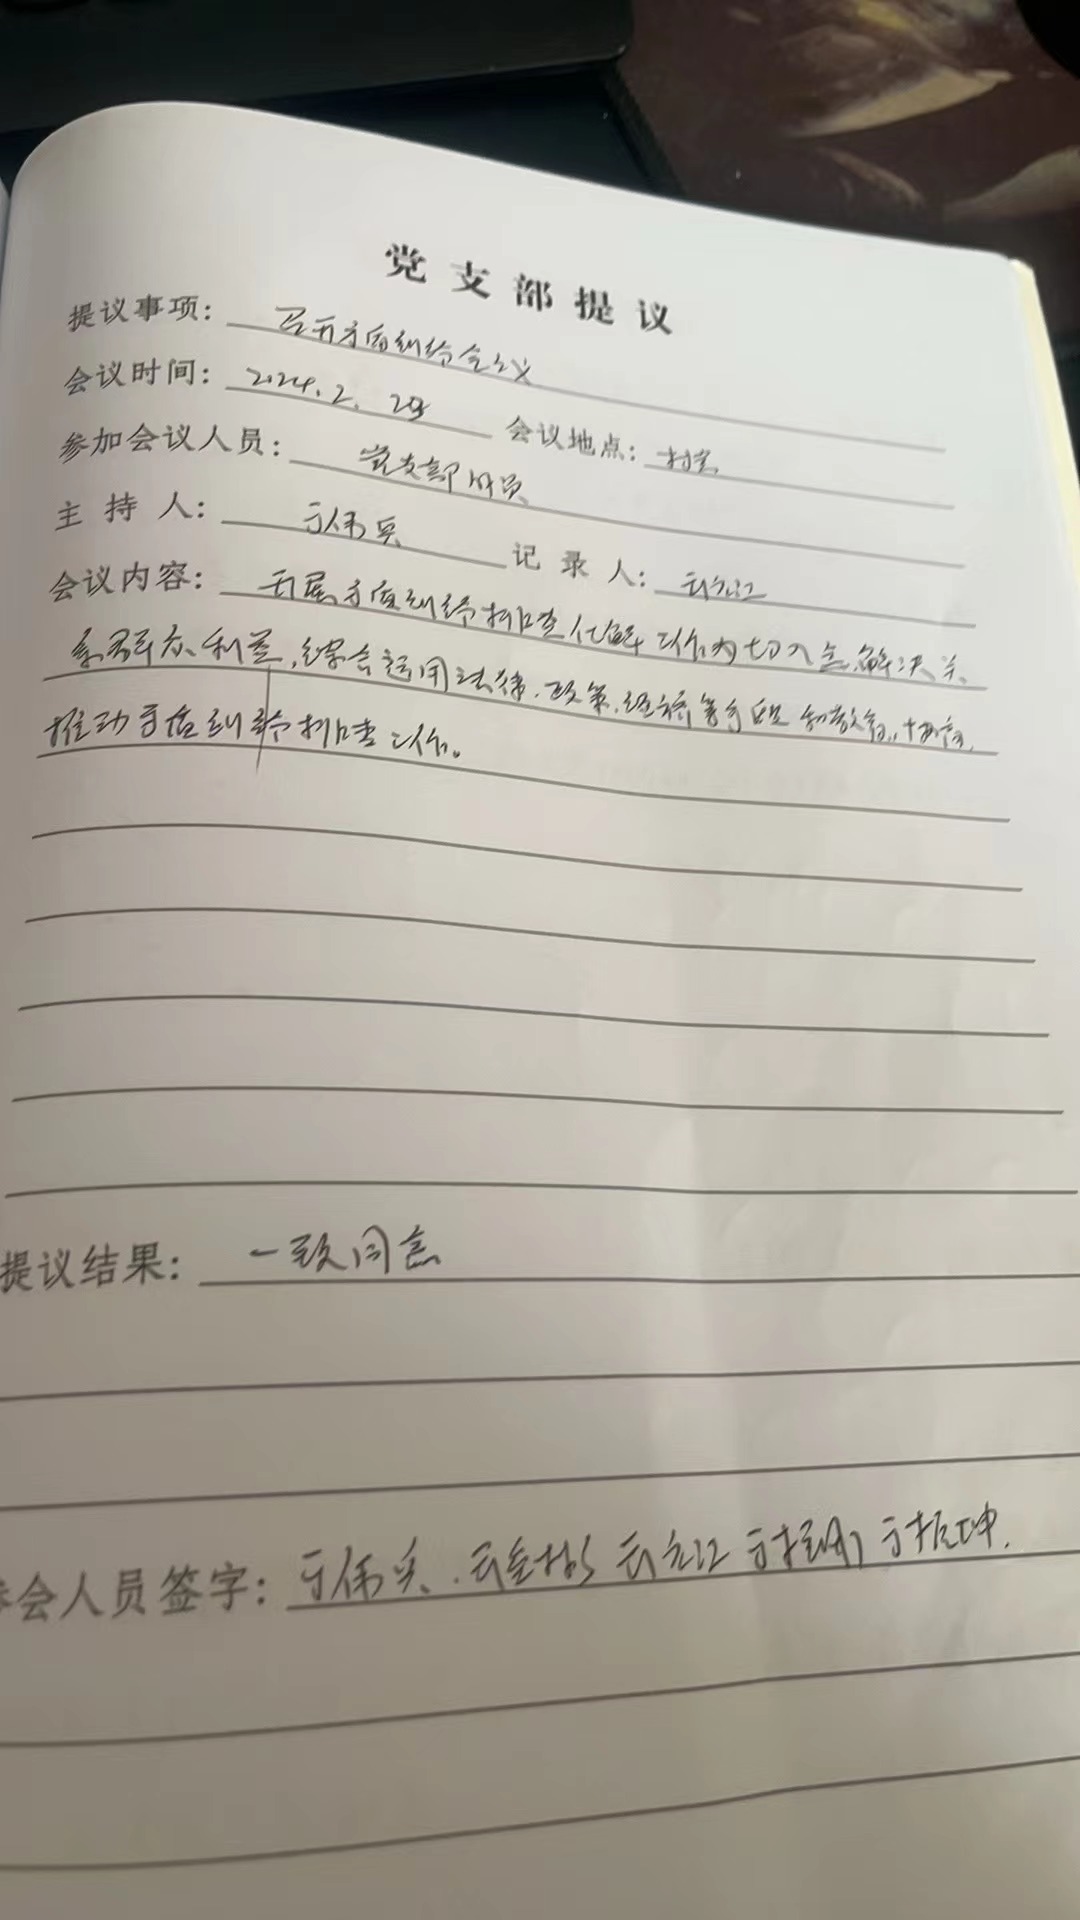 党支部提议
提议事项： 召开矛盾纠纷会议
会议时间： 2024.2. 会议地点： 村室
参加会议人员： 党支部成员
主持人： 于伟兵 记录人：
会议内容： 开展矛盾纠纷排查化解工作为切入点,解决关
系群众利益,综合运用法律.政策.经济等手段和教育.协商.
推动矛盾纠纷排查工作。
提议结果： 一致同意
参会人员签字： 于伟兵.